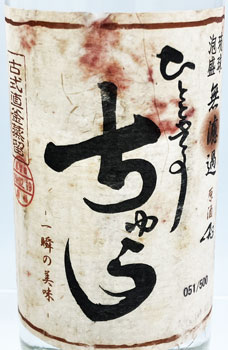 琉球
泡盛
無濾過
原酒
ちゅら
古式直釜蒸留
一瞬の美味
051/500